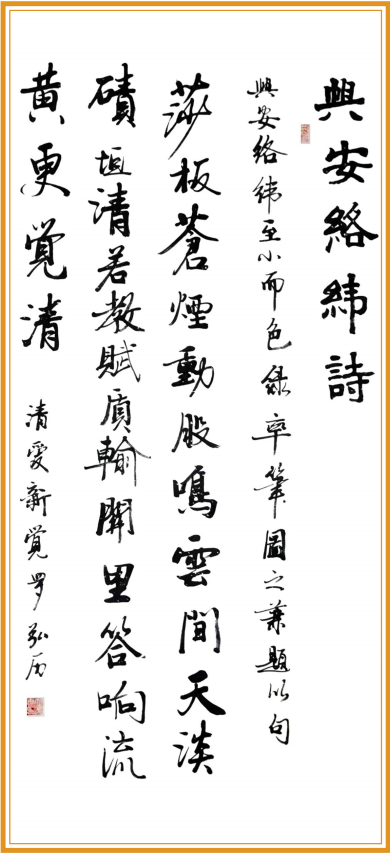 興安絡緯詩
興安絡緯至小而色綠率筆圖之兼題以句
莎板蒼煙動股鳴雲間天淡
磧垣清若教賦質輸關里答响流
黄更覺清
清愛新覺罗弘历